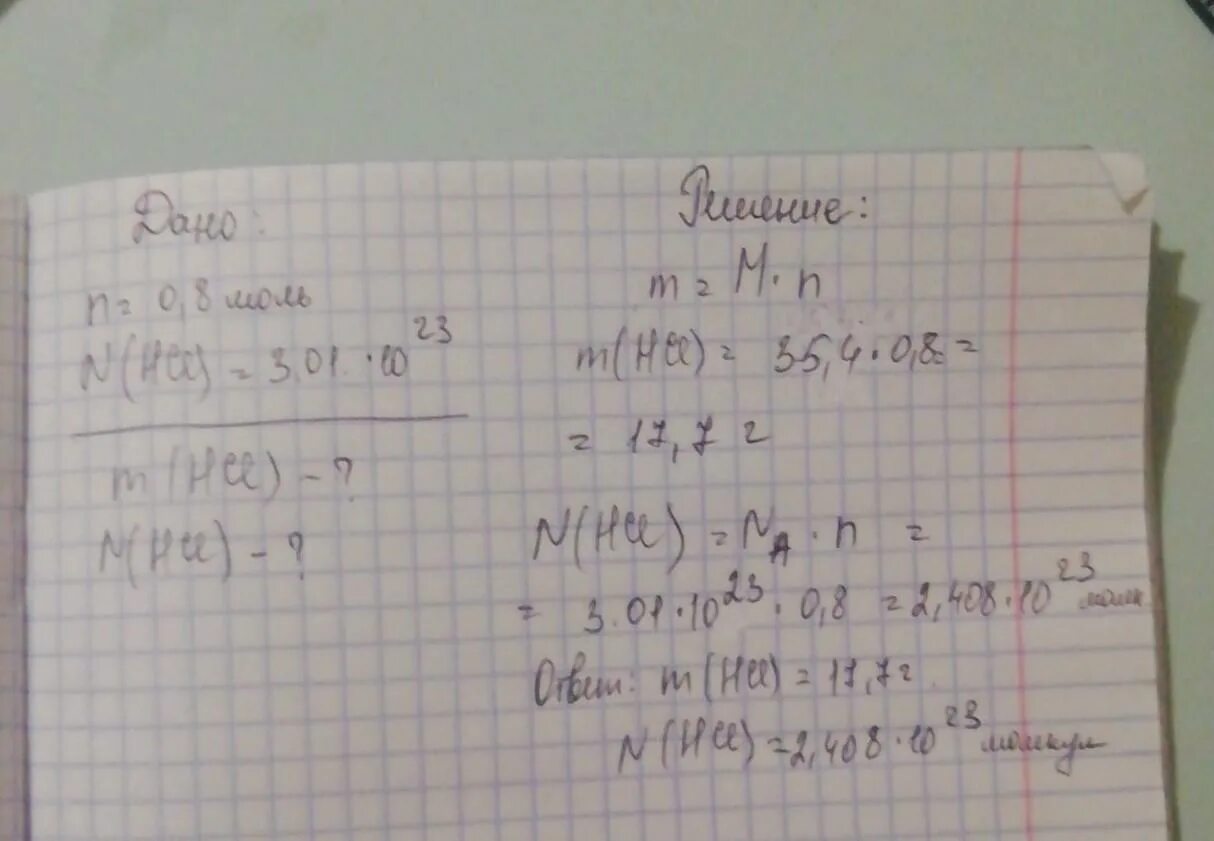 Дано:
n = 0,8 моль
N(HCl) = 3.01 · 10²³
m(HCl) - ?
N(HCl) - ?
Решение:
m = M · n
m(HCl) = 35,4 · 0,8 =
= 17,7 г
N(HCl) = N_A · n =
= 3.01 · 10²³ · 0,8 = 2,408 · 10²³ молек
Ответ: m(HCl) = 17,7 г
N(HCl) = 2,408 · 10²³ молекул